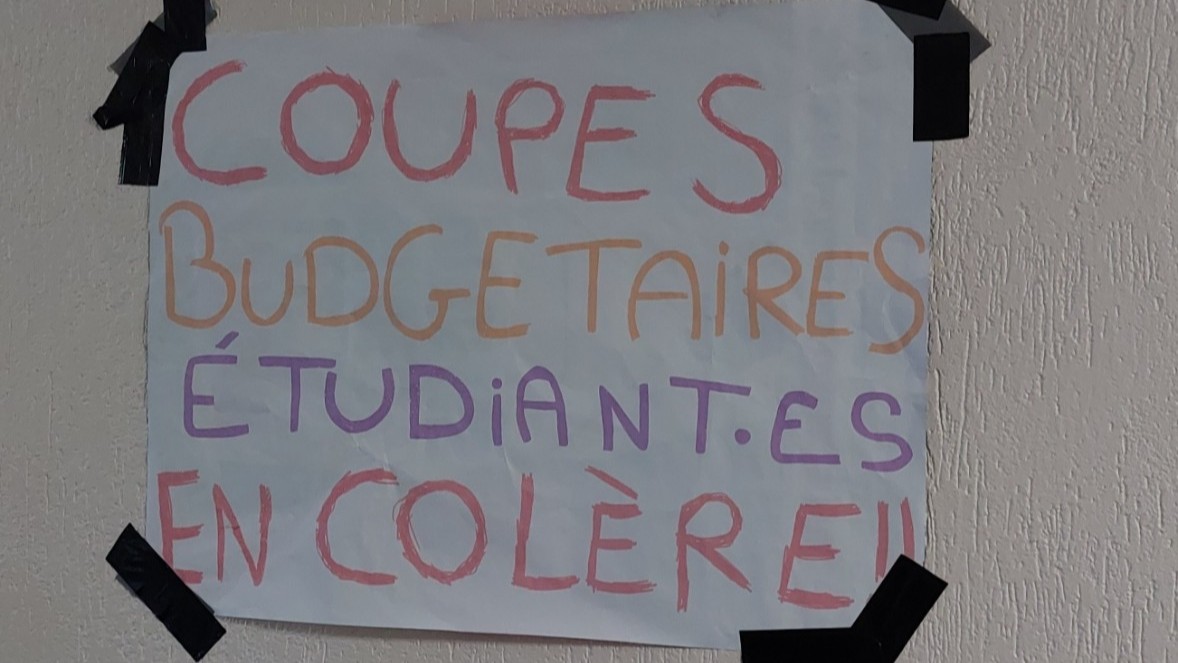 COUPES
BUDGETAIRES
ÉTUDIANT·ES
EN COLÈRE!!